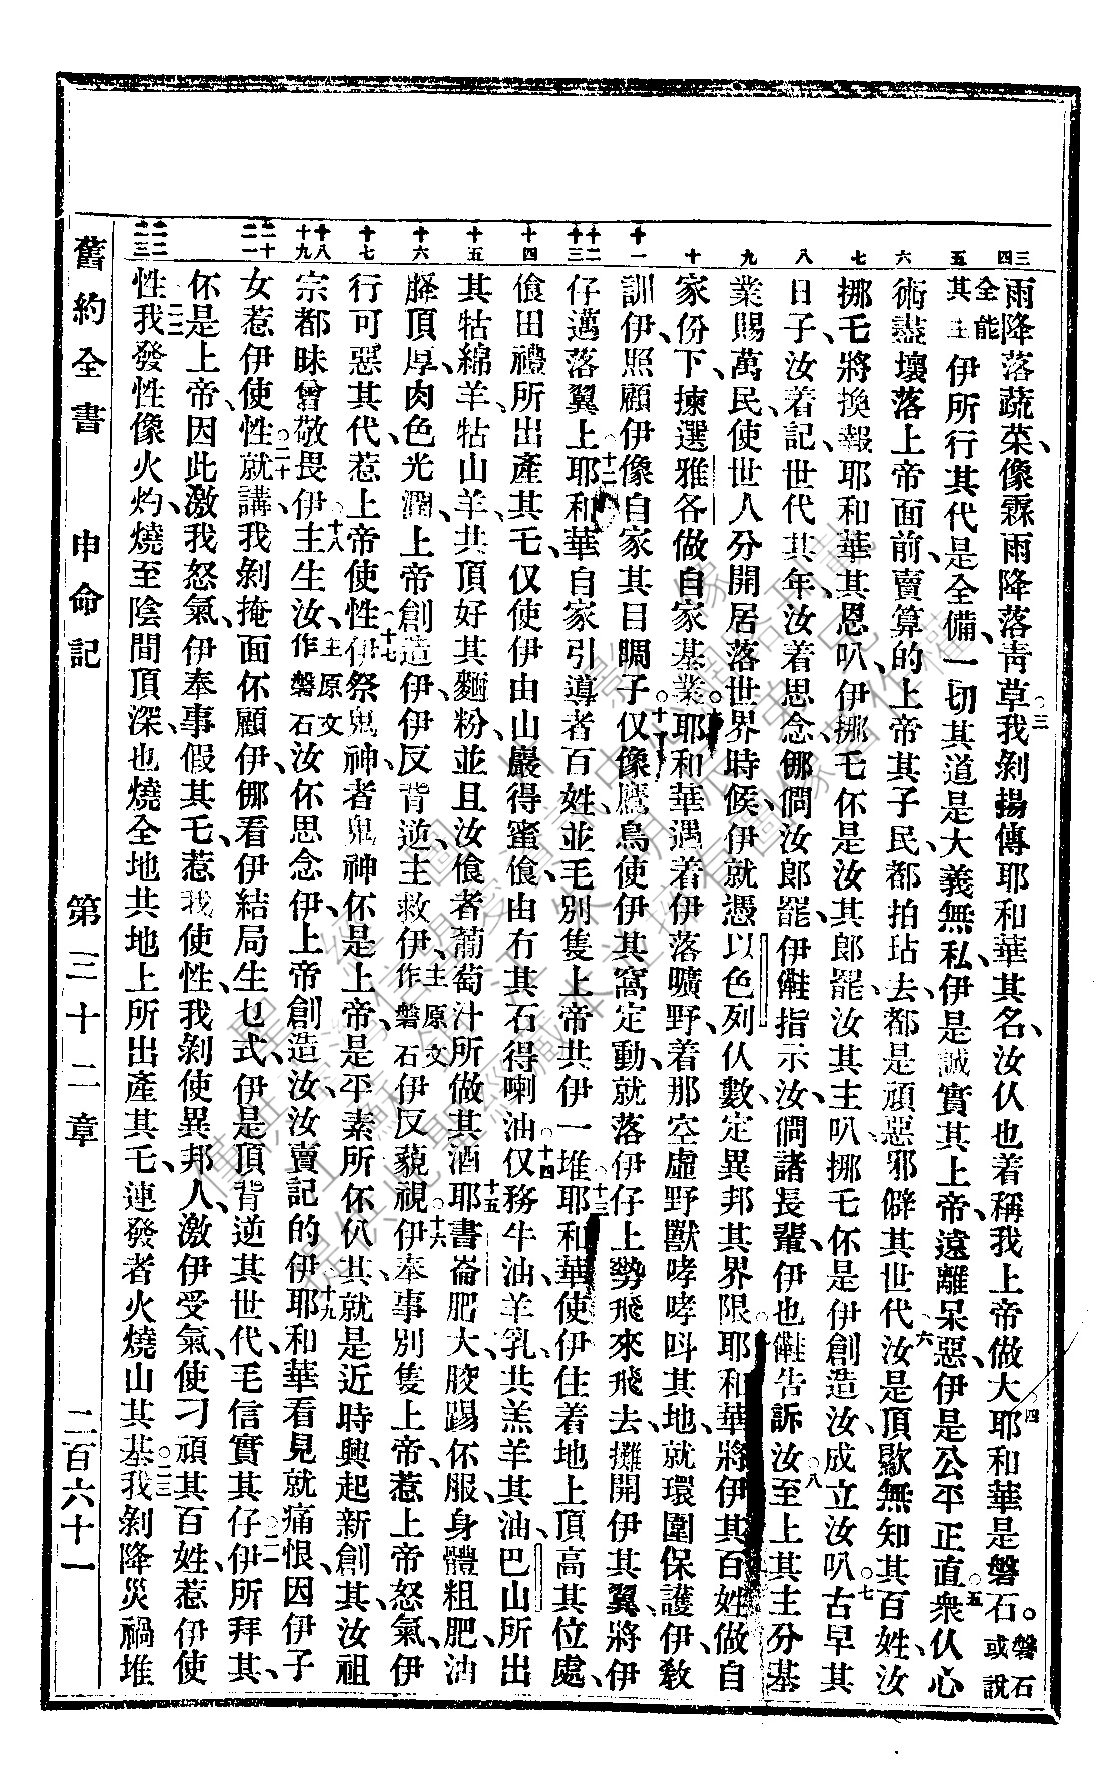 雨降落蔬菜、像霖雨降落靑草、○三我剝揚傳耶和華其名、汝伙也着稱我上帝做大、○四耶和華是磐石。磐石或說
全能其主伊所行其代是全備、一切其道是大義無私、伊是誠實其上帝、遠離呆惡、伊是公平正直、○五衆伙心
術盡壞、落上帝面前賣算的上帝其子民、都拍玷去、都是頑惡邪僻其世代、○六汝是頂獃無知其百姓、汝
挪乇將換報耶和華其恩叭、伊挪乇伓是汝其郎罷、汝其主叭、挪乇伓是伊創造汝、成立汝叭、○七古早其
日子汝着記、世代其年汝着思念、挪倜汝郎罷、伊㑚指示汝、倜諸長輩、伊也㑚告訴汝、○八至上其主分基
業賜萬民、使世人分開居落世界時候、伊就憑以色列伙數、定異邦其界限、○九耶和華將伊其百姓、做自
家份下、揀選雅各、做自家基業。○十耶和華遇着伊落曠野、着那空虛野獸哮哮呌其地、就環圍保護伊、教
訓伊、照顧伊、像自家其目瞯子、○十一仅像鷹鳥使伊其窩定動、就落伊仔上勢飛來飛去、攤開伊其翼、將伊
仔邁落翼上、○十二耶和華自家引導者百姓、並毛別隻上帝共伊一堆、○十三耶和華使伊住着地上頂高其位處、
食田禮所出產其乇、仅使伊由山巖得蜜食、由冇其石得喇油、○十四仅務牛油、羊乳、共羔羊其油、巴山所出
其牯綿羊、牯山羊、共頂好其麵粉、並且汝食者葡萄汁所做其酒、○十五耶書崙肥大、骹踢伓服、身體粗肥、油
膵頂厚、肉色光潤、上帝創造伊、伊反背逆、主救伊、主原文作磐石伊反藐視、○十六伊奉事別隻上帝、惹上帝怒氣、伊
行可惡其代、惹上帝使性、○十七伊祭鬼神、者鬼神伓是上帝、是平素所伓伙其、就是近時興起新創其、汝祖
宗都昧曾敬畏伊、○十八主生汝、主原文作磐石汝伓思念伊、上帝創造汝、汝賣記的伊、○十九耶和華看見就痛恨、因伊子
女惹伊使性、○二十就講、我剝掩面伓顧伊、挪看伊結局生乜式、伊是頂背逆其世代、毛信實其仔、○二一伊所拜其、
伓是上帝、因此激我怒氣、伊奉事假其乇、惹我使性、我剝使異邦人、激伊受氣、使刁頑其百姓、惹伊使
性、○二二我發性像火灼、燒至陰間頂深、也燒全地共地上所出產其乇、連發者火燒山其基、○二三我剝降災禍堆
三 四 五 六 七 八 九 十 十一 十二 十三 十四 十五 十六 十七 十八 十九 二十 二一 二二 二三
舊約全書 申命記 第三十二章 二百六十一